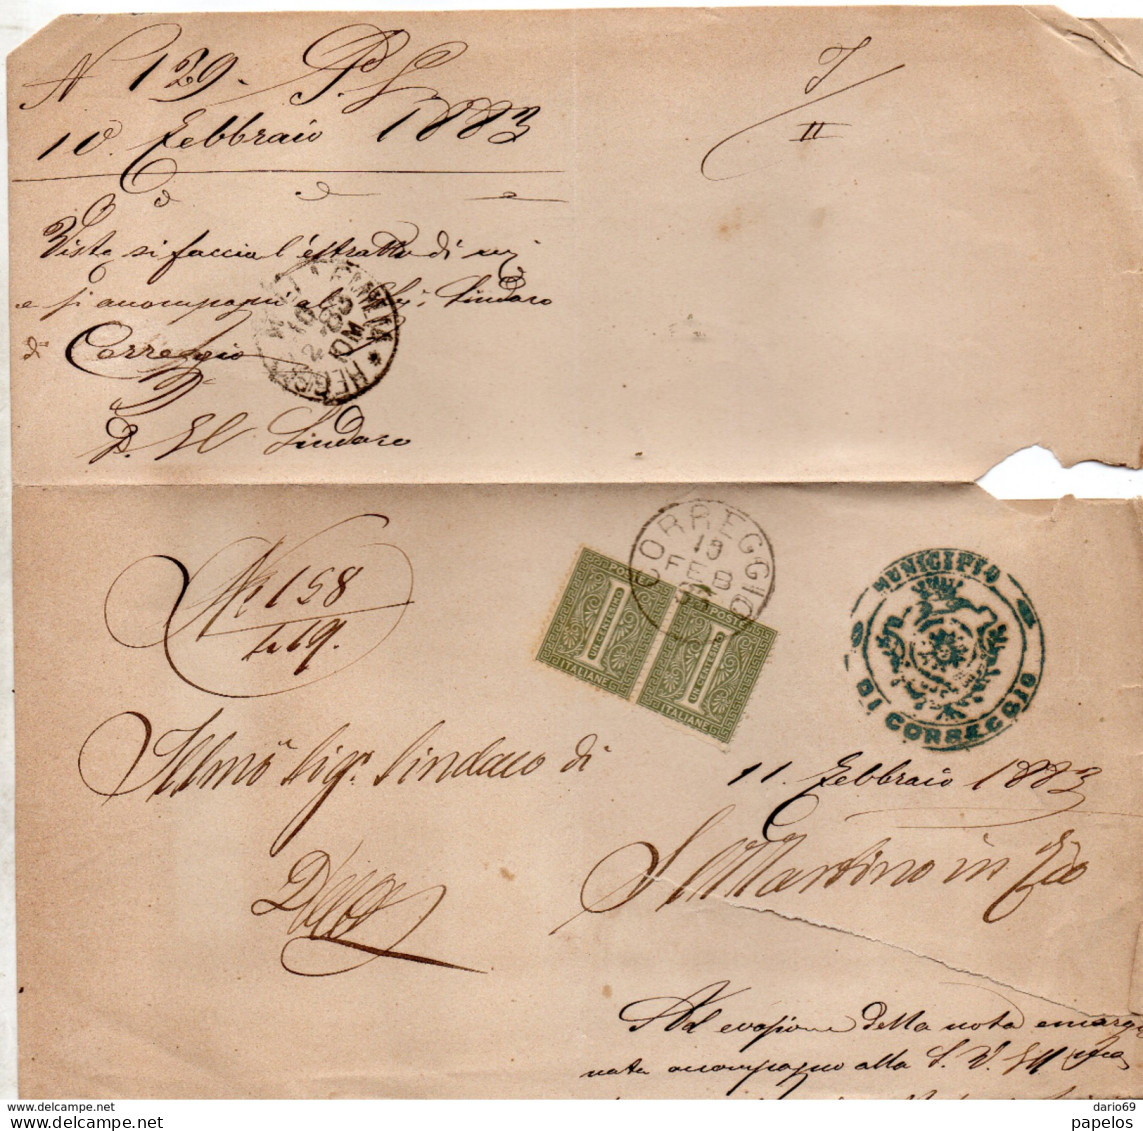 N 129. P. S.
10. Febbraio 1883
I/II
Visto si faccia l'estratto di
e si accompagni al Sig. Sindaco
di Correggio
P. Il Sindaco
REGGIO
10 M
N. 158
469.
CORREGGIO
13
FEB
83
POSTE
1
UN CENTESIMO
ITALIANE
POSTE
1
UN CENTESIMO
ITALIANE
MUNICIPIO
DI CORREGGIO
Illmo Sigr. Sindaco di
11. Febbraio 1883
S Martino in Rio
Ad evasione della nota emargi
nata accompagno alla S. V. Ill
www.delcampe.net
dario69
papelos